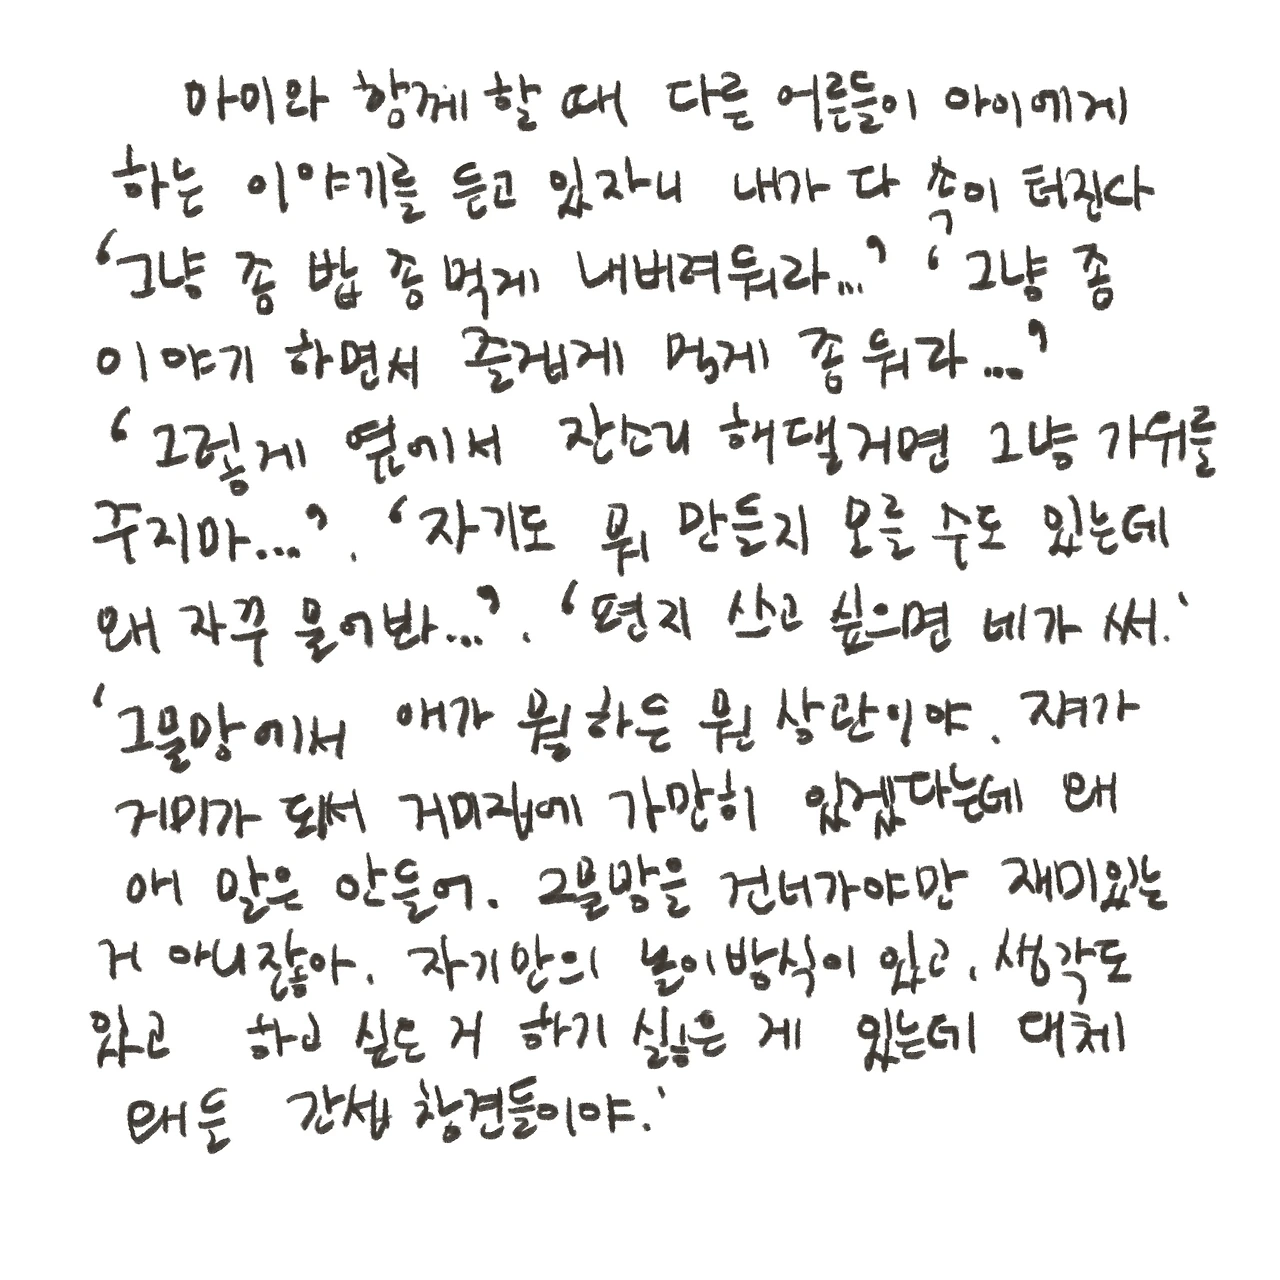 아이와 함께 할 때 다른 어른들이 아이에게
하는 이야기를 듣고 있자니 내가 다 속이 터진다
‘그냥 좀 밥 좀 먹게 내버려둬라...’ ‘그냥 좀
이야기 하면서 즐겁게 먹게 좀 둬라...’
‘그렇게 옆에서 잔소리 해댈거면 그냥 가위를
주지마...’. ‘자기도 뭐 만들지 모를 수도 있는데
왜 자꾸 물어봐...’. ‘편지 쓰고 싶으면 네가 써.’
‘그물망에서 애가 뭘하든 뭔 상관이야. 쟤가
거미가 되서 거미집에 가만히 있겠다는데 왜
애 말은 안들어. 그물망을 건너가야만 재미있는
거 아니잖아. 자기만의 놀이방식이 있고, 생각도
있고 하고 싶은 거 하기 싫은 게 있는데 대체
왜들 간섭 참견들이야.’